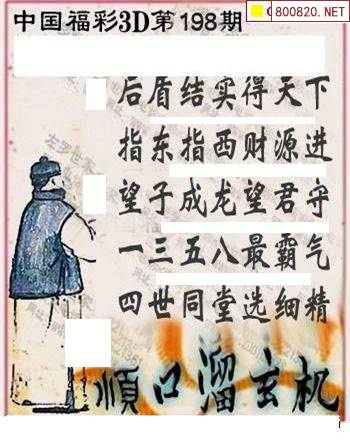 800820.NET
中国福彩3D第198期
后盾结实得天下
指东指西财源进
望子成龙望君守
一三五八最霸气
四世同堂选细精
顺口溜玄机